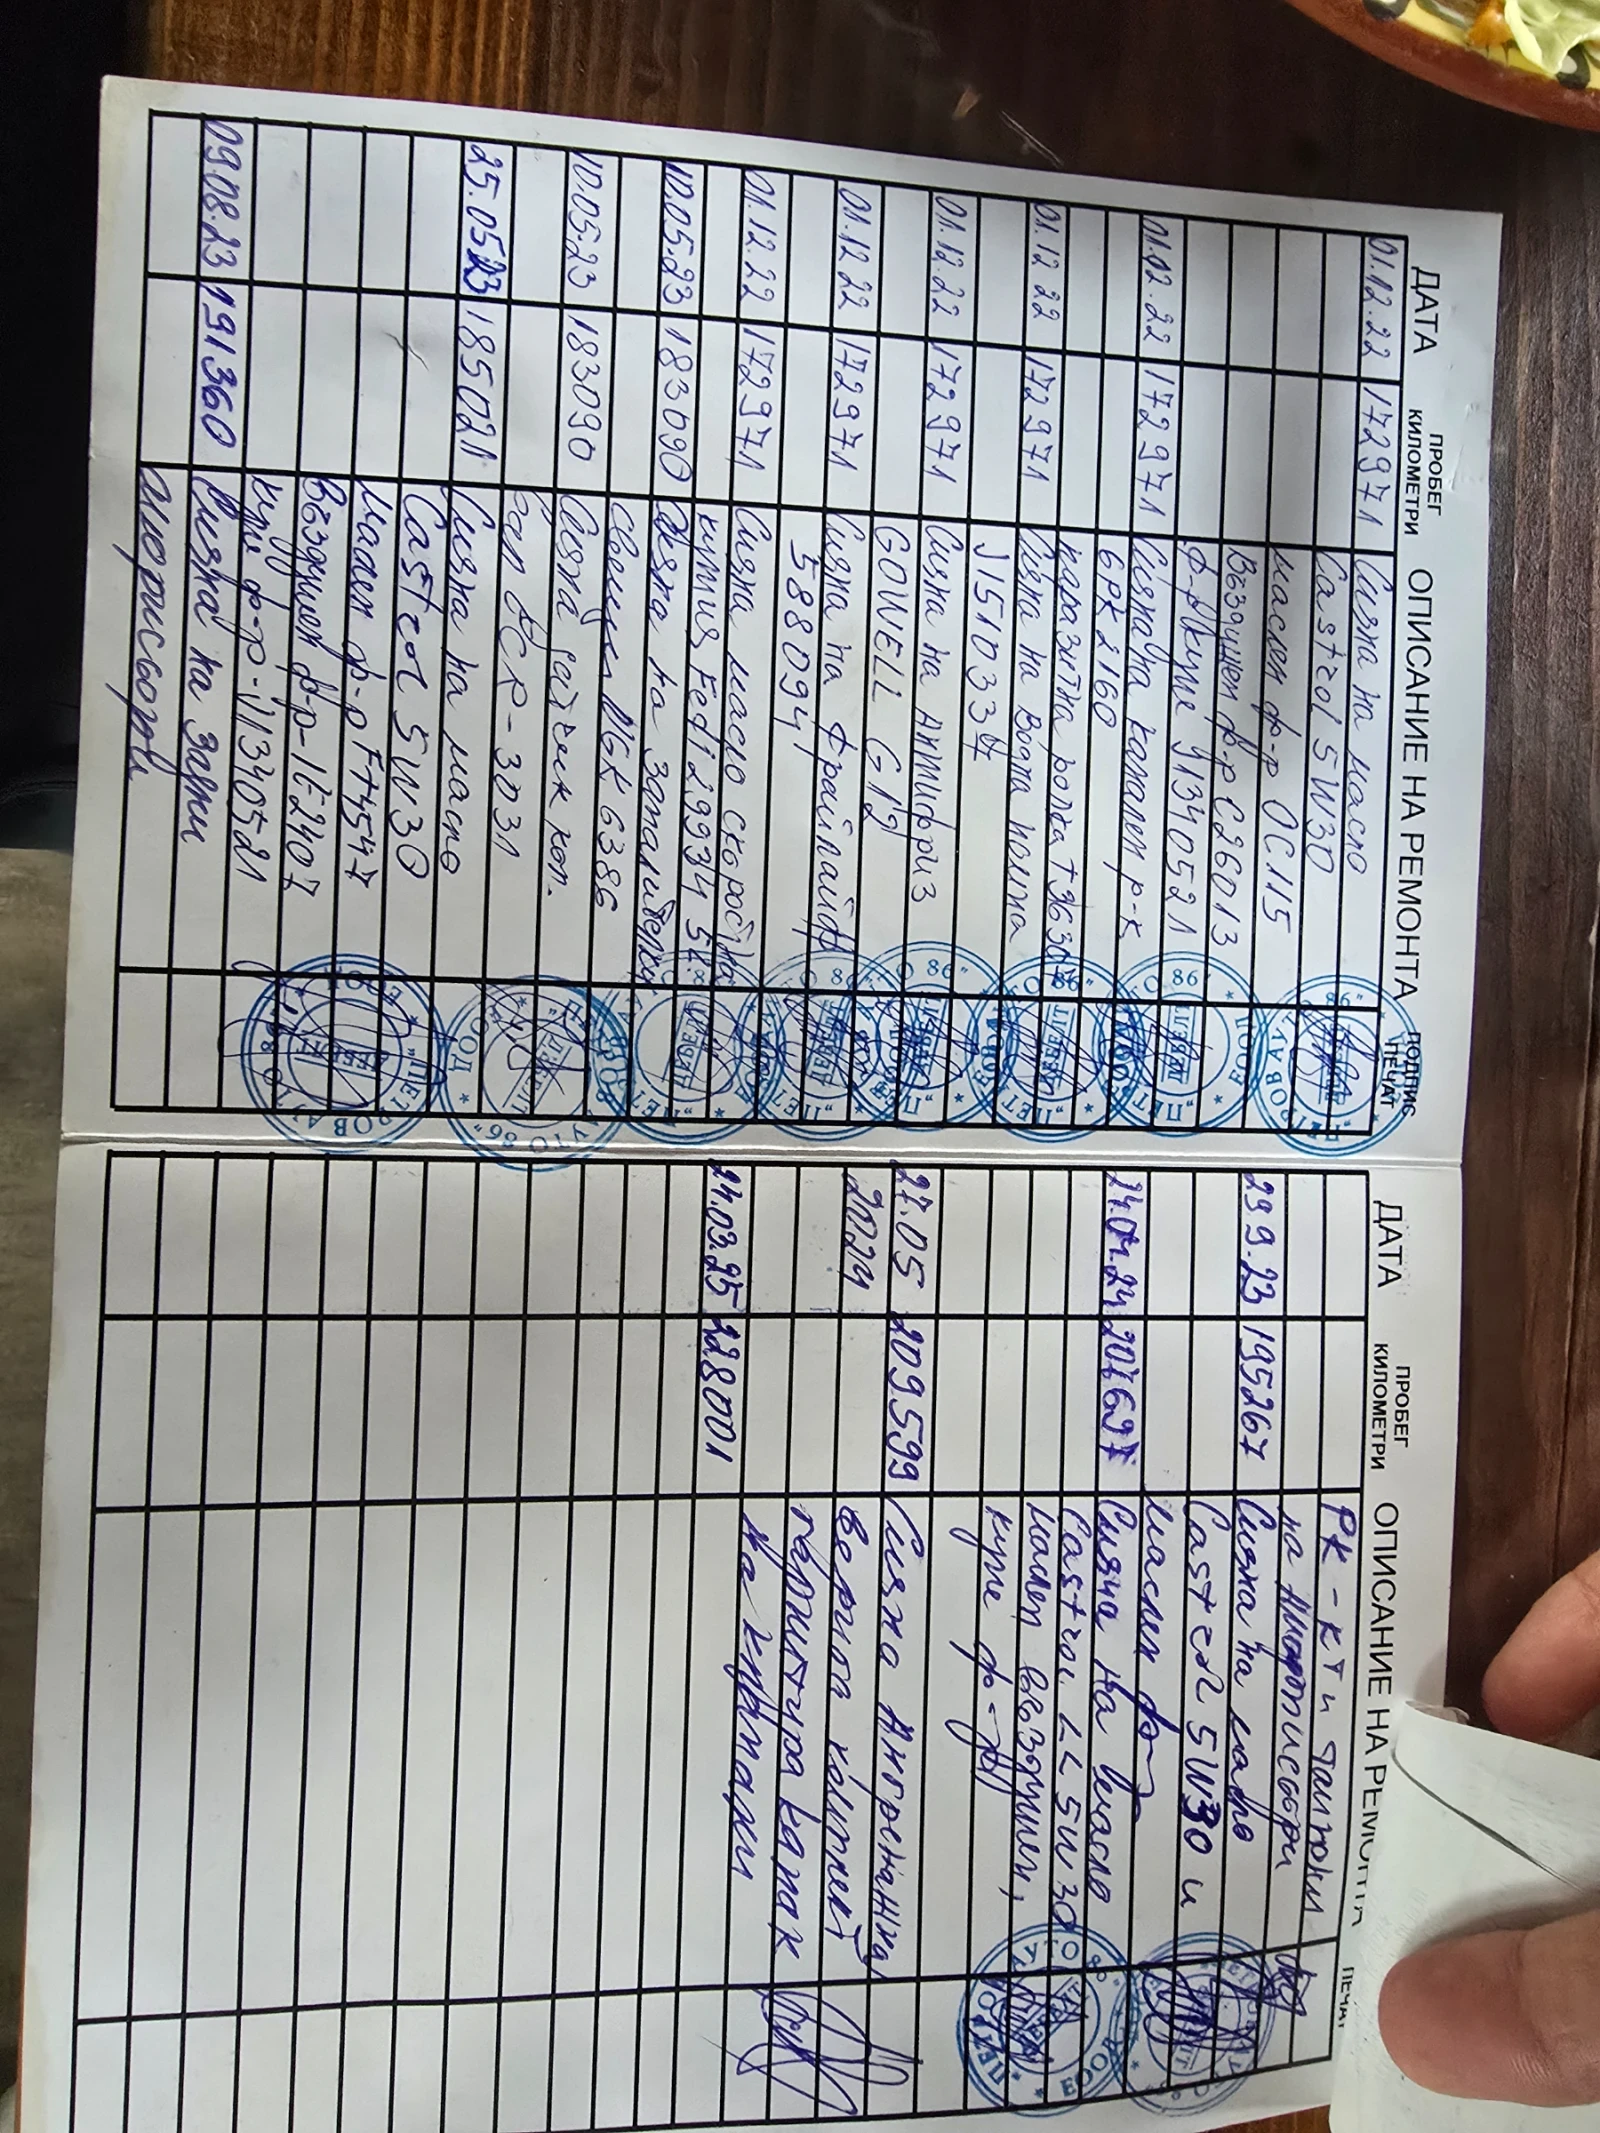 ДАТА ПРОБЕГ КИЛОМЕТРИ ОПИСАНИЕ НА РЕМОНТА ПОДПИС ПЕЧАТ
01.12.22 172971 Смяна на масло
Castrol 5W30
маслен ф-р OC115
Въздушен ф-р C26013
ф-р купе J1340521
01.12.22 172971 Смяна на канален р-к
6PK2160
паразитна ролка T36317
01.12.22 172971 Смяна на Водна помпа
J1510337
01.12.22 172971 Смяна на Антифриз
GOWELL G12
01.12.22 172971 Смяна на
588094
01.12.22 172971 Смяна масло скоростна
кутия Febi 29934 5л.
10.05.23 183090 Смяна на запалителни
свещи NGK 6386
10.05.23 183090 Смяна датчик кол.
вал
25.05.23 185021 Смяна на масло
Castrol 5W30
маслен ф-р
Въздушен ф-р-1E2407
купе ф-р-J1340521
09.08.23 191360 Смяна на задни
амортисьори
ДАТА ПРОБЕГ КИЛОМЕТРИ ОПИСАНИЕ НА РЕМОНТА ПЕЧАТ
РК-кт и тампони
на Амортисьори
29.9.23 195267 Смяна на масло
Castrol 5W30 и
маслен ф-р
Смяна на масло
Castrol LL 5W30
маслен въздушен,
купе ф-ри
27.05 209599 Смяна Ангренажна
2024 верига комплект
гарнитура капак
24.03.25 228001 на клапани